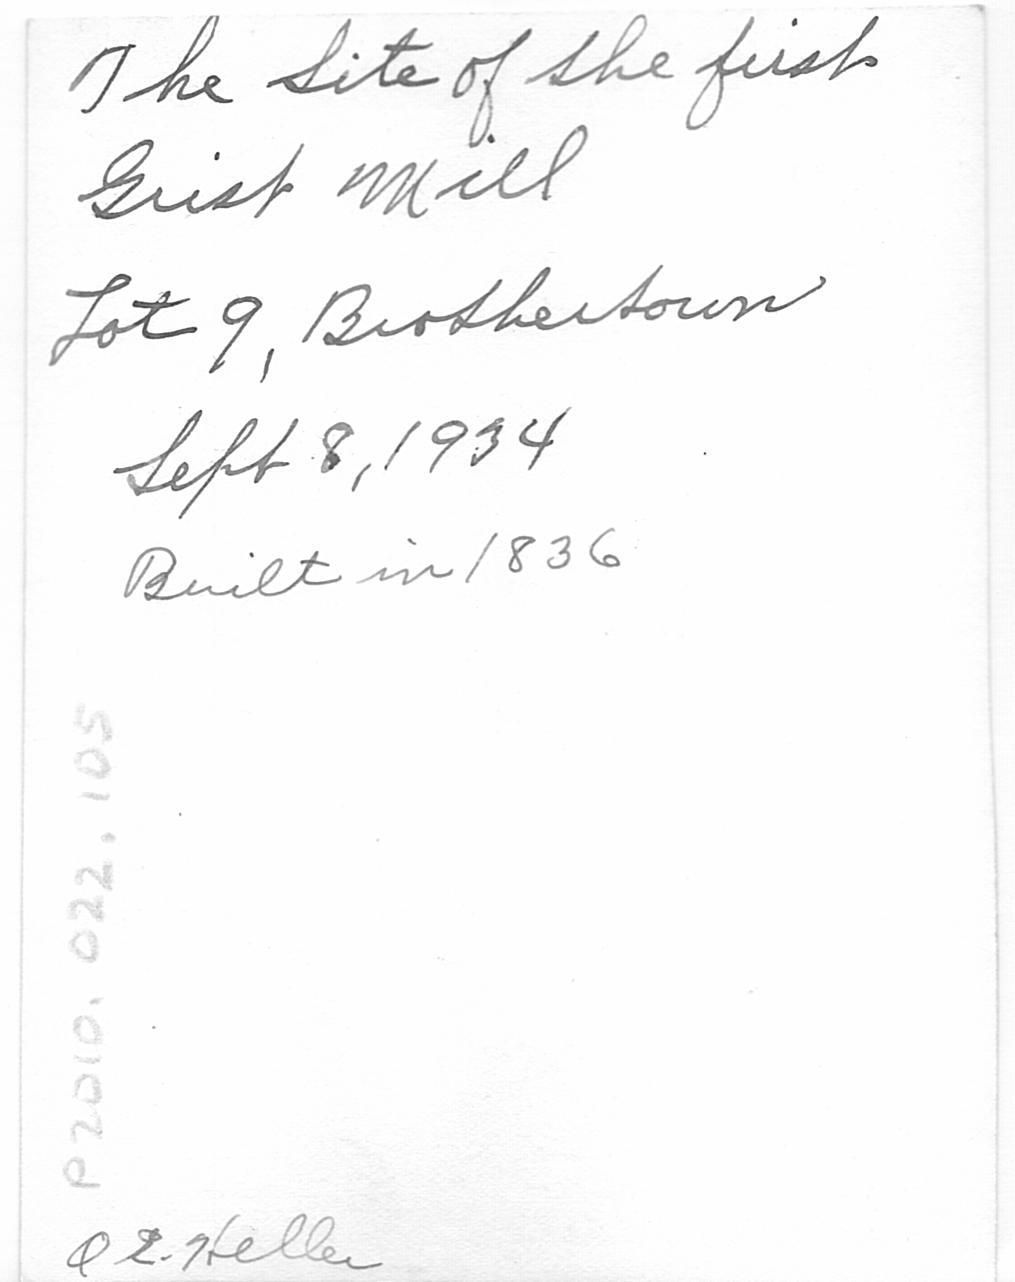 The Site of the first
Grist Mill
Lot 9, Brothertown
Sept 8, 1934
Built in 1836
P2010.022.105
E. Heller